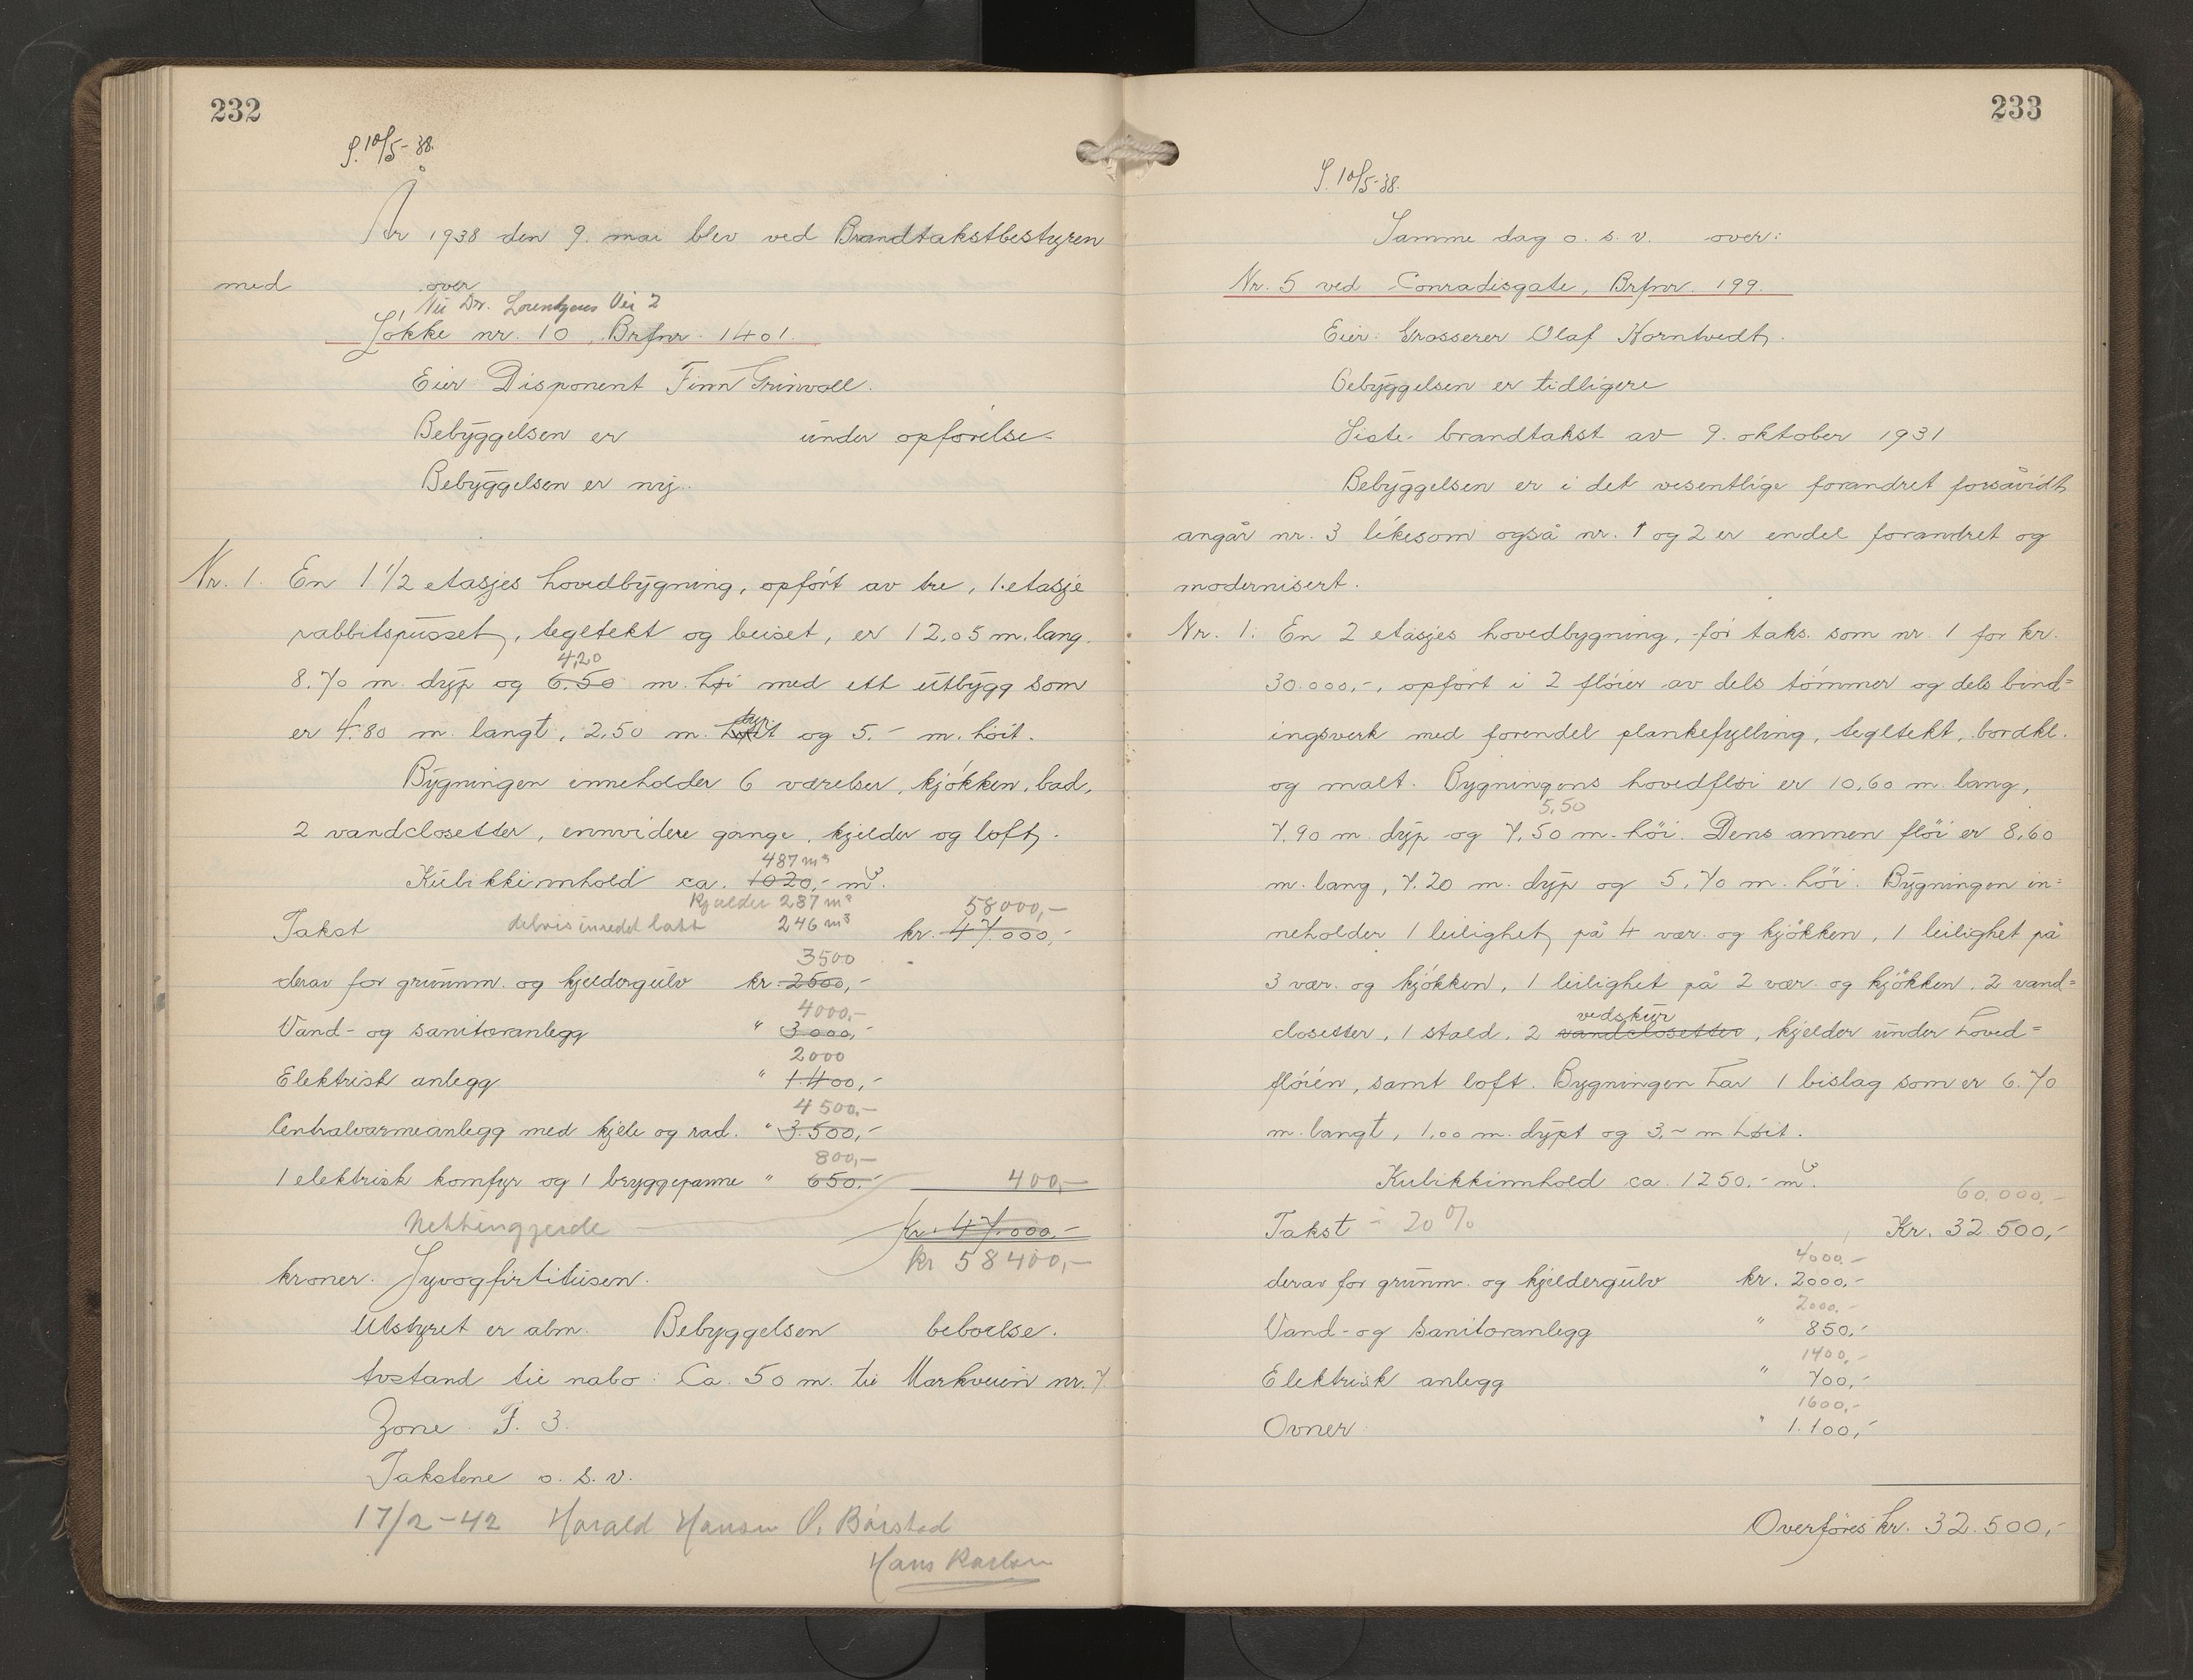 232
S. 10/5-38.
År 1938 den 9. mai blev ved Brandtakstbestyren
med over
Nu Dr. Lorentzens Vei 2
Løkke nr. 10, Brfnr. 1401.
Eier: Disponent Finn Grinvoll.
Bebyggelsen er under opførelse-
Bebyggelsen er ny.
Nr. 1. En 1 1/2 etasjes hovedbygning, opført av tre, 1. etasje
rabbitspusset, tegltekt og beiset, er 12,05 m. lang,
4,20
8.70 m. dyp og 6.50 m. høi med ett utbygg som
er 4.80 m. langt, 2,50 m. dyp og 5.- m. høit.
Bygningen inneholder 6 værelser, kjøkken, bad,
2 vandclosetter, ennvidere gange, kjelder og loft.
487 m³
Kubikkinnhold ca. 1020,- m³.
Kjælder 287 m³ 58000,-
Takst delvis inredet loft 246 m³ kr. 47.000,-
3500
derav for grunnm. og kjeldergulv kr. 2500,-
4000,-
Vand- og sanitæranlegg " 3000,-
2000
Elektrisk anlegg " 1.400,-
4500,-
Centralvarmeanlegg med kjele og rad. " 3.500,-
800,-
1 elektrisk komfyr og 1 bryggepanne " 650,- 400,-
Nettinggjerde Kr. 47.000,-
kr 58400,-
kroner. Syvogførtitusen.
Utstyret er alm. Bebyggelsen beboelse.
Avstand til nabo: Ca. 50 m. til Markveien nr. 7
Zone F. 3.
Takstene o. s. v.
17/2-42 Harald Hansen O. Børstad
Hans Karlsen
233
S. 10/5-38.
Samme dag o. s. v. over:
Nr. 5 ved Conradisgate, Brfnr. 199.
Eier: Grosserer Olaf Korntvedt.
Bebyggelsen er tidligere
Siste brandtakst av 9. oktober 1931
Bebyggelsen er i det vesentlige forandret forsåvidt
angår nr. 3 likesom også nr. 1 og 2 er endel forandret og
modernisert.
Nr. 1. En 2 etasjes hovedbygning, før taks. som nr. 1 for kr.
30.000,-, opført i 2 fløier av dels tømmer og dels bind=
ingsverk med forendel plankefylling, tegltekt, bordkl.
og malt. Bygningens hovedfløi er 10,60 m. lang,
5,50
7.90 m. dyp og 7,50 m. høi. Dens annen fløi er 8,60
m. lang, 7.20 m. dyp og 5,70 m. høi. Bygningen in=
neholder 1 leilighet på 4 vær. og kjøkken, 1 leilighet på
3 vær. og kjøkken, 1 leilighet på 2 vær. og kjøkken, 2 vand=
vedskur
closetter, 1 stald, 2 vandclosetter, kjelder under hoved=
fløien, samt loft. Bygningen har 1 bislag som er 6.70
m. langt, 1,00 m. dypt og 3.- m høit.
Kubikkinnhold ca. 1250.- m³.
60.000,-
Takst - 20% Kr. 32.500,-
4000,-
derav for grunnm. og kjeldergulv kr. 2000,-
2000,-
Vand- og sanitæranlegg " 850,-
1400,-
Elektrisk anlegg " 700,-
1600,-
Ovner " 1.100,-
Overføres kr. 32.500,-